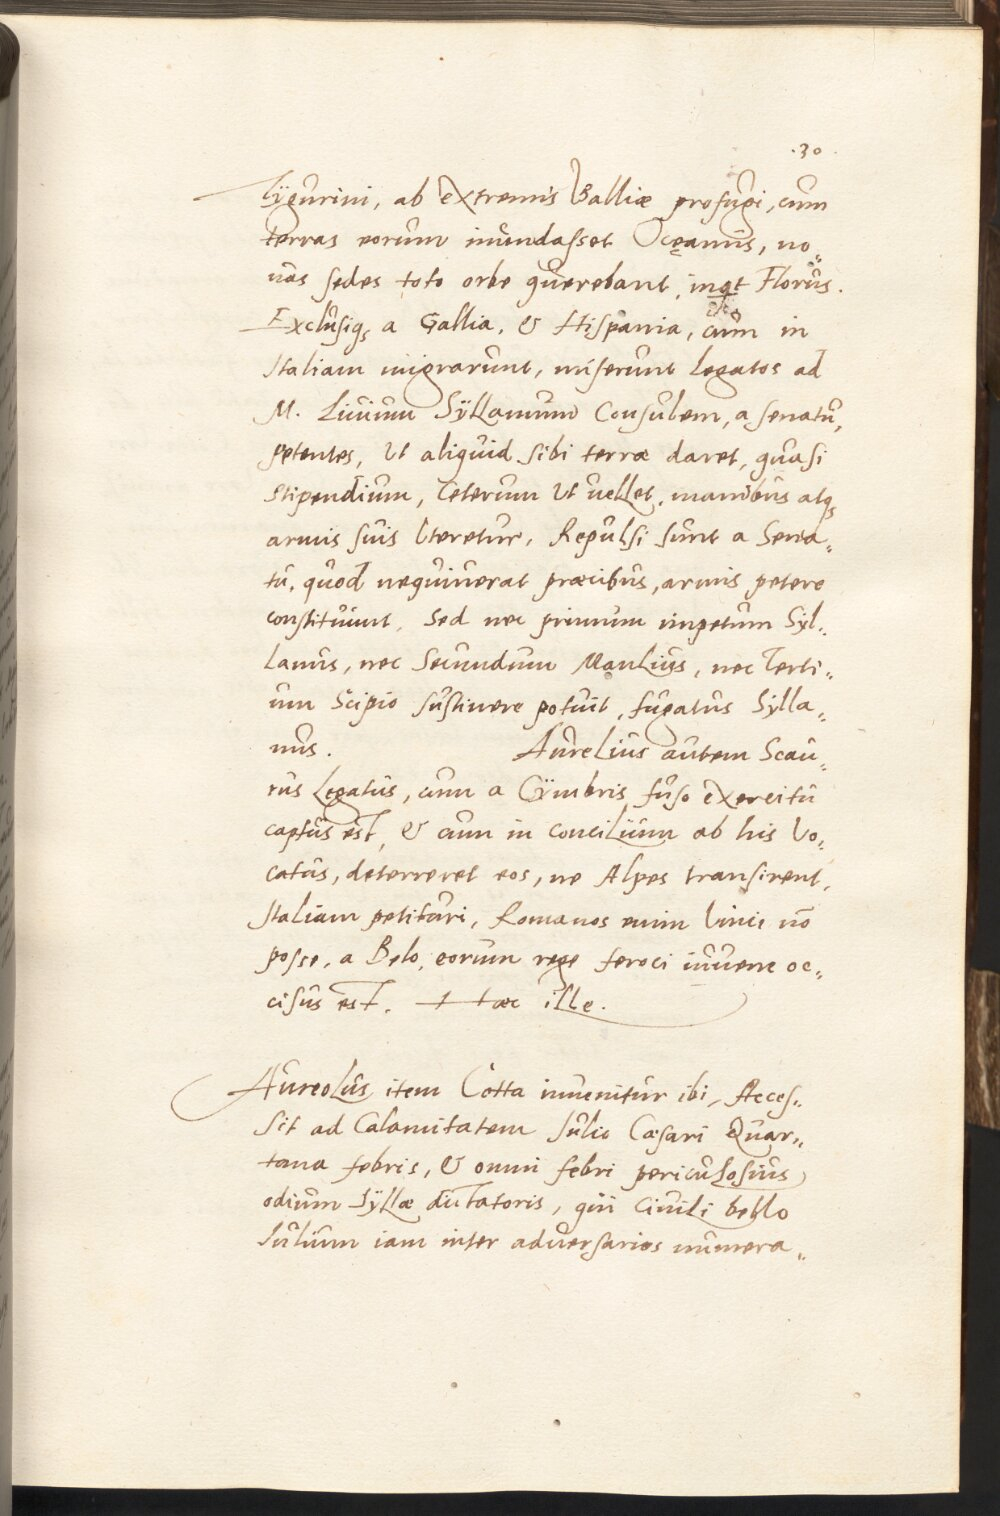 .30.
Tÿgurini, ab extremis Galliæ profugi, cum
terras eorum inundasset Oceanus, no„
uas sedes toto orbe querebant, inqt Florus.
Exclusiq; a Gallia, & Hispania, cum in
Italiam migrarunt, miserunt legatos ad
M. Liuium Sÿllanum Consulem, a senatu,
petentes, Ut aliquid sibi terræ daret, quasi
stipendium, Ceterum Ut uellet, manibus atq;
armis suis Uteretur, Repulsi sunt a Sena„
tu, quod nequiuerat præcibus, armis petere
constituunt, Sed nec primum impetum Syl„
lanus, nec Secundum Manlius, nec Terti„
um Scipio sustinere potuit, fugatus Sylla„
nus. Aurelius autem Scau„
rus Legatus, cum a Cÿmbris fuso exercitu
captus est, & cum in concilium ab his Vo„
catus, deterreret eos, ne Alpes transirent,
Italiam petituri, Romanos enim Vinci nō
posse, a Belo, eorum rege feroci iuuene oc„
cisus est. Hæc ille.
Aureolus item Cotta inuenitur ibi, Acces„
sit ad Calamitatem Iulio Cæsari Quar„
tana febris, & omni febri periculosius
odium Syllæ dictatoris, qui Ciuili bello
Iulium iam inter aduersarios numera„